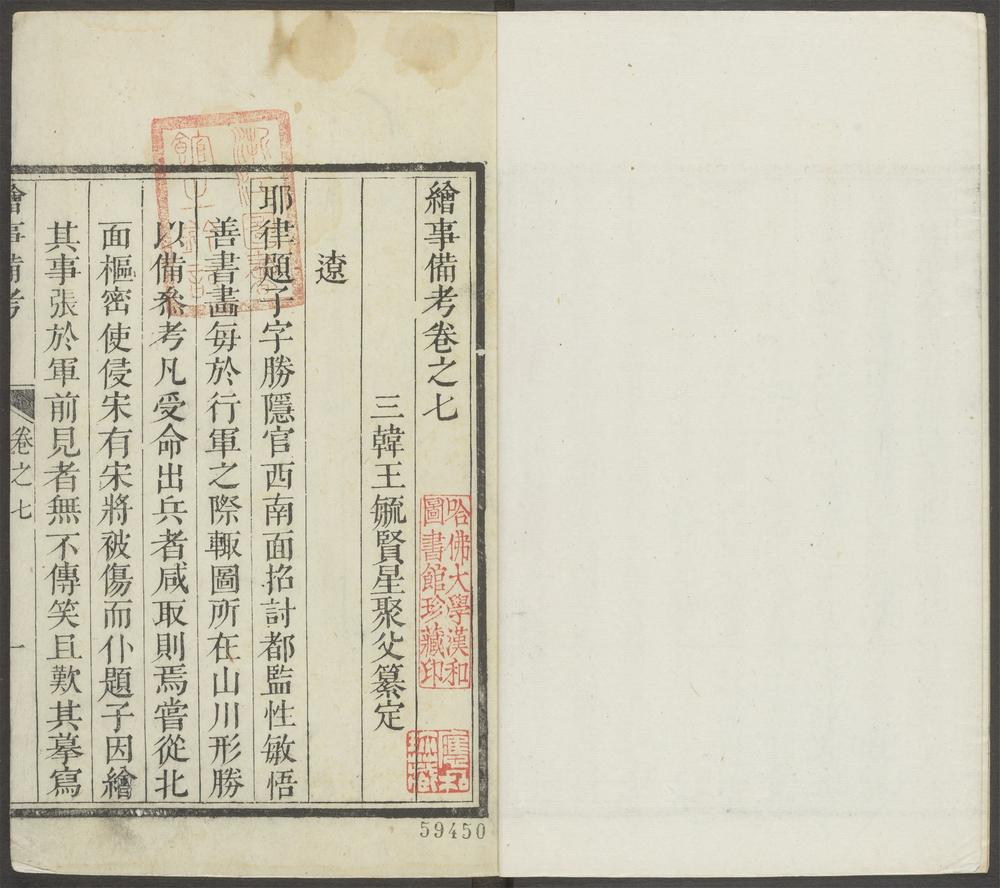 繪事備考卷之七
三韓王毓賢星聚父纂定
遼
耶律題子字勝隱官西南面招討都監性敏悟
善書畫每於行軍之際輙圖所在山川形勝
以備叅考凡受命出兵者咸取則焉嘗從北
面樞密使侵宋有宋將被傷而仆題子因繪
其事張於軍前見者無不傳笑且歎其摹寫
繪事備考
卷之七
一
哈佛大學漢和
圖書館珍藏印
59450